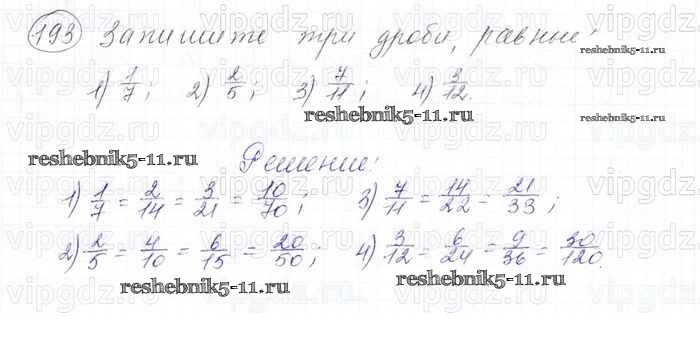 193 Запишите три дроби, равные:
reshebnik5-11.ru
1) 1/7; 2) 2/5; 3) 7/11; 4) 3/12.
reshebnik5-11.ru
reshebnik5-11.ru
Решение:
1) 1/7 = 2/14 = 3/21 = 10/70; 3) 7/11 = 14/22 = 21/33;
2) 2/5 = 4/10 = 6/15 = 20/50; 4) 3/12 = 6/24 = 9/36 = 30/120.
reshebnik5-11.ru
reshebnik5-11.ru
vipgdz.ru